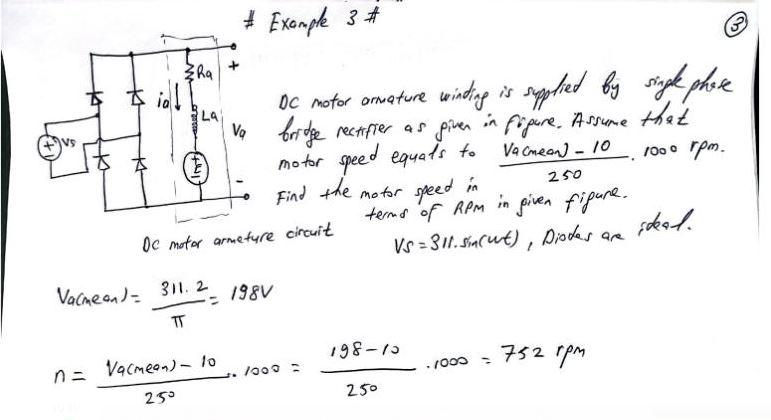 # Example 3 #
3
Ra
ia
La
+
Va
-
+
Vs
E
DC motor armature winding is supplied by single phase
bridge rectifier as given in figure. Assume that
motor speed equals to Va(mean) - 10 / 250 . 1000 rpm.
Find the motor speed in
terms of RPM in given figure.
DC motor armeture circuit
Vs = 311.sin(wt) , Diodes are ideal.
Va(mean) = 311.2 / π = 198V
n = Va(mean) - 10 / 250 . 1000 = 198-10 / 250 . 1000 = 752 rpm